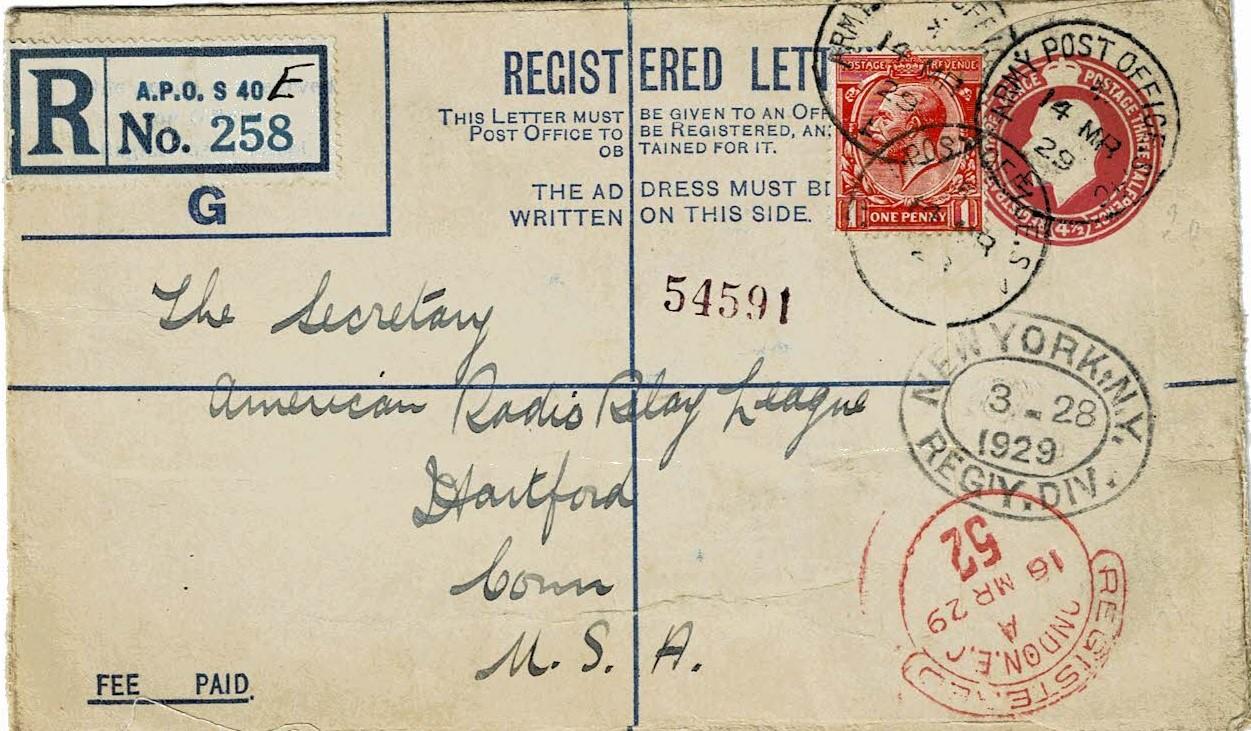 R
A.P.O. S 40 E
No. 258
G
REGISTERED
THIS LETTER MUST BE GIVEN TO AN
POST OFFICE TO BE REGISTERED, AN
OBTAINED FOR IT.
THE ADDRESS MUST BE
WRITTEN ON THIS SIDE.
POSTAGE REVENUE
ONE PENNY
ARMY POST OFFICE
14 MR
29
4½
54591
The Secretary
American Radio Relay League
Hartford
Conn
U. S. A.
NEW YORK, N.Y.
3 - 28
1929
REG'Y. DIV.
52
16 MR 29
A
LONDON.E.C
REGISTERED
FEE PAID.